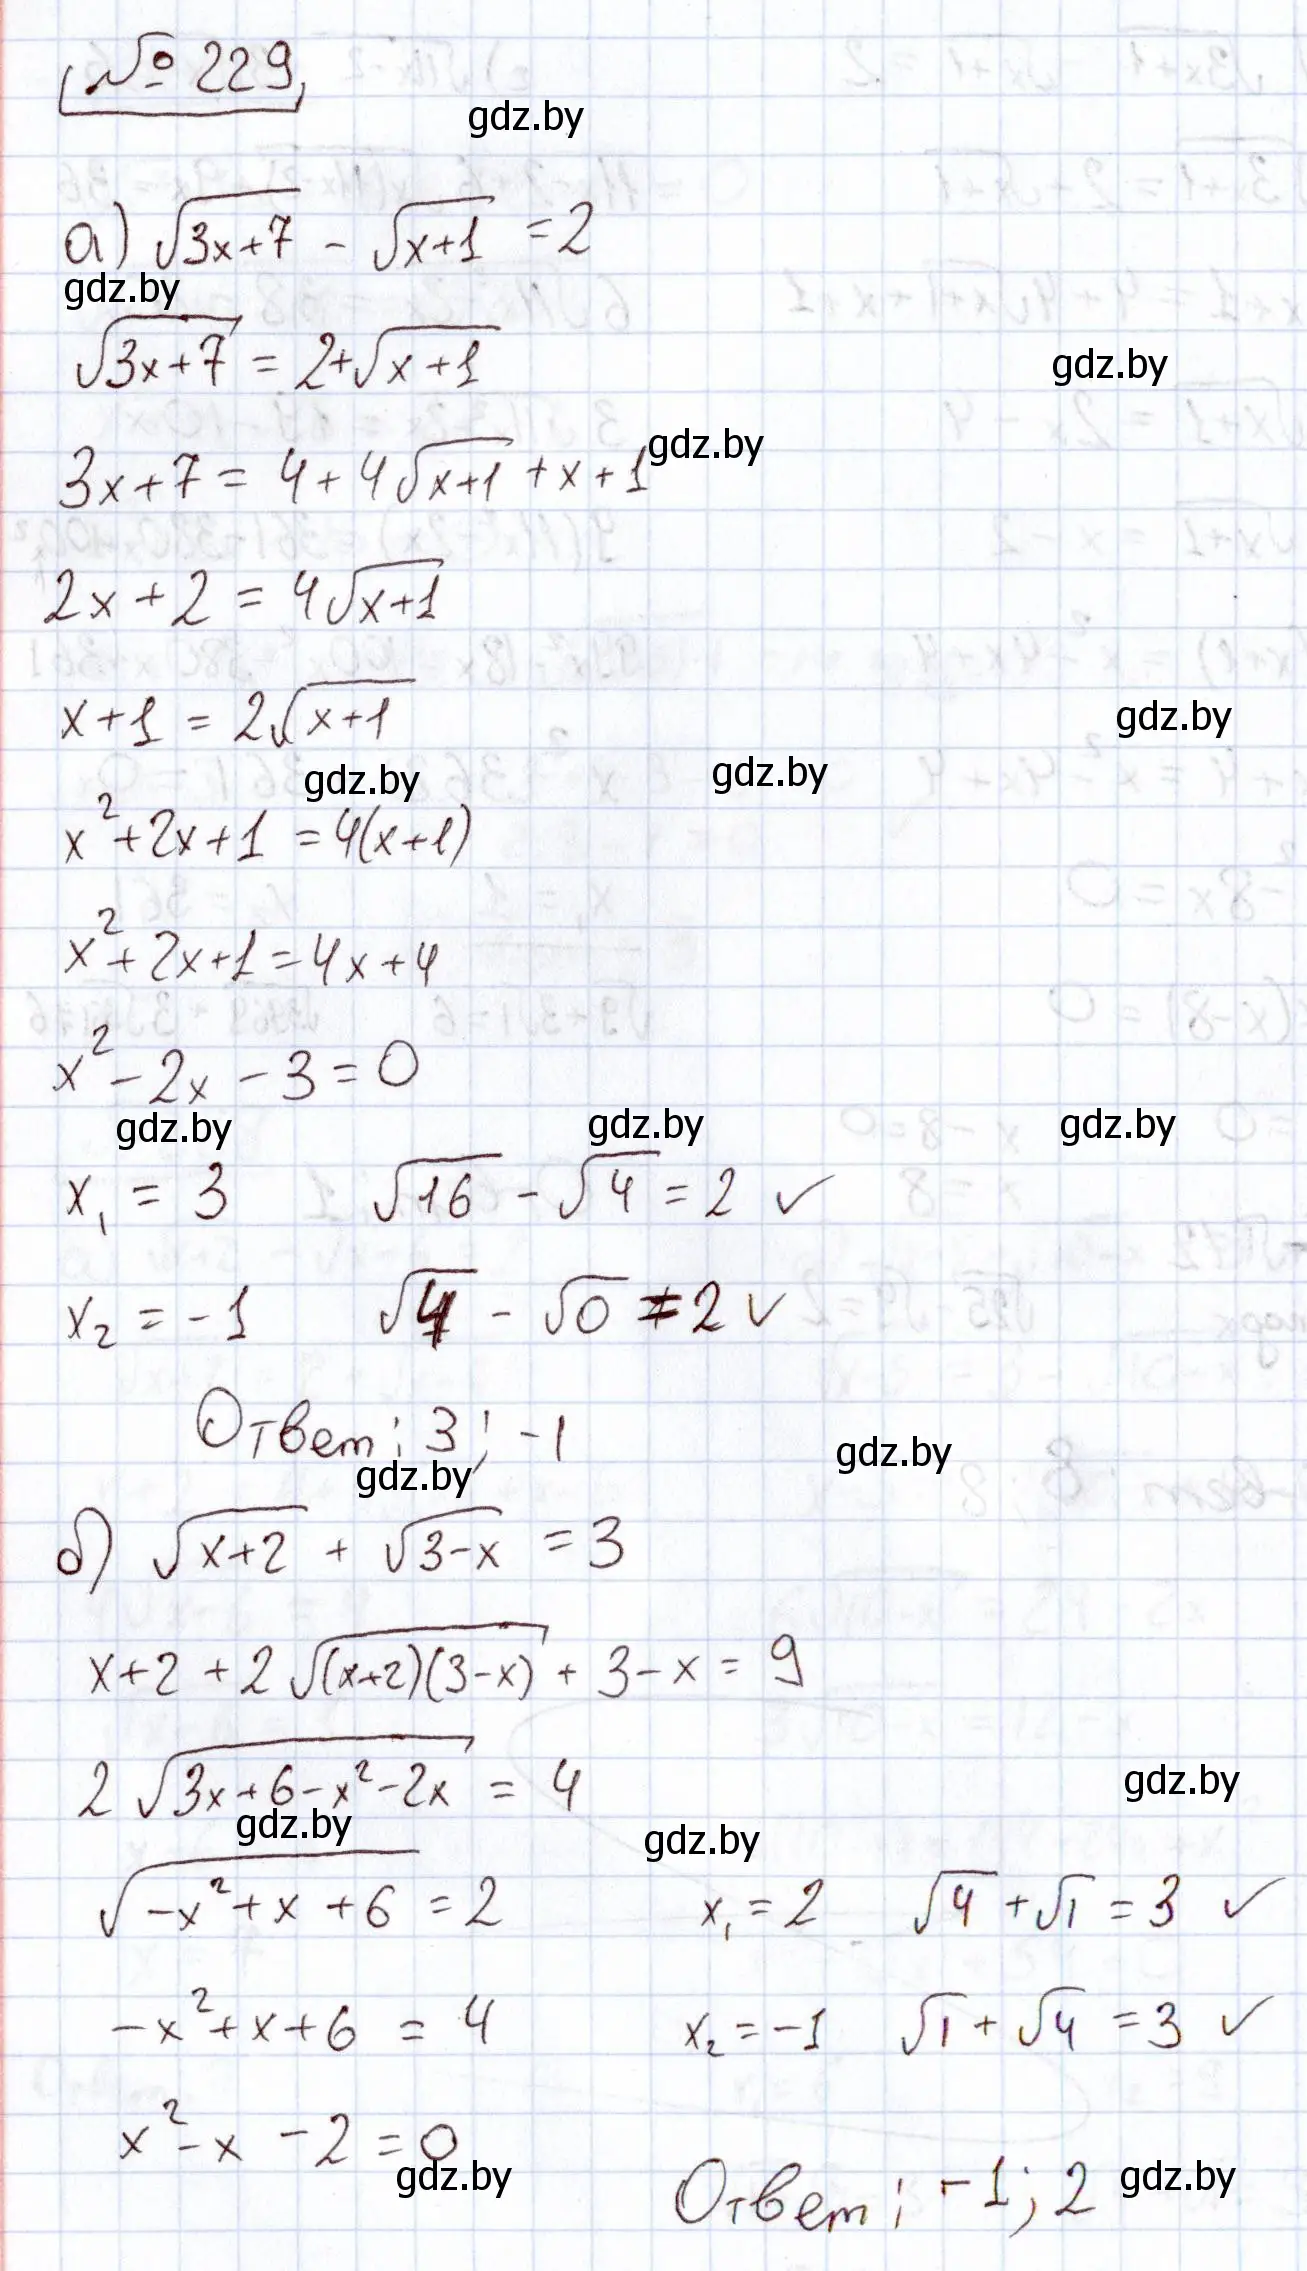 № 229
gdz.by
а) √(3x+7) - √(x+1) = 2
gdz.by
√(3x+7) = 2+√(x+1)
gdz.by
gdz.by
3x+7 = 4+4√(x+1) + x+1
2x+2 = 4√(x+1)
x+1 = 2√(x+1)
gdz.by
gdz.by
gdz.by
x²+2x+1 = 4(x+1)
x²+2x+1 = 4x+4
x²-2x-3=0
gdz.by
gdz.by
gdz.by
x₁ = 3 √16 - √4 = 2 ✓
x₂ = -1 √4 - √0 ≠ 2 ✓
Ответ: 3; -1
gdz.by
gdz.by
б) √(x+2) + √(3-x) = 3
x+2+2√((x+2)(3-x)) + 3-x = 9
2√(3x+6-x²-2x) = 4
gdz.by
gdz.by
gdz.by
√(-x²+x+6) = 2
-x²+x+6 = 4
x²-x-2=0
gdz.by
x₁ = 2 √4 + √1 = 3 ✓
x₂ = -1 √1 + √4 = 3 ✓
Ответ: -1; 2
gdz.by